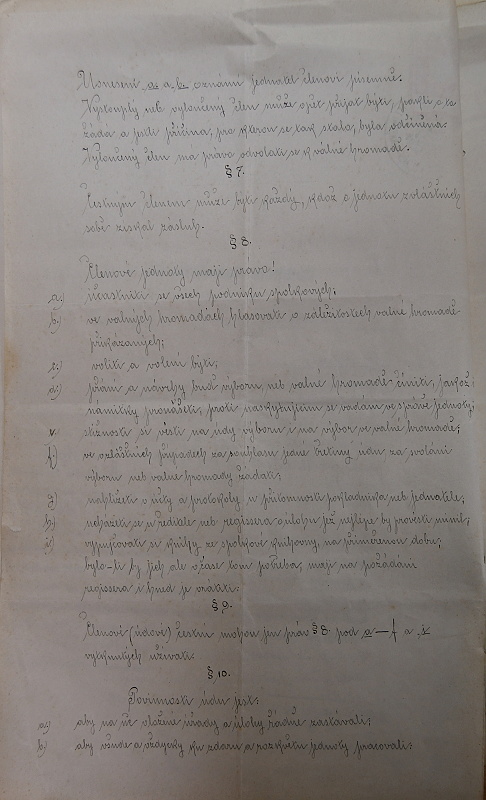 Usnesení a. a b. oznámí jednatel členovi písemně.
Vystouplý neb vyloučený člen může opět přijat býti, pakli o to
žádá a jestli příčina, pro kterou se tak stalo, byla odčiněna.
Vyloučený člen má právo odvolati se k valné hromadě.
§ 7.
Čestným členem může býti každý, kdož o jednotu zvláštních
sobě získal zásluh.
§ 8.
Členové jednoty mají právo!
a.) účastniti se všech podniků spolkových;
b.) ve valných hromadách hlasovati o záležitostech valné hromadě
přikázaných;
c.) voliti a voleni býti;
d.) přání a návrhy buď výboru, neb valné hromadě činiti, jakož
námitky pronášeti, proti naskytujícím se vadám ve správě jednoty;
stížnosti si vésti na údy výboru i na výbor ve valné hromadě;
f.) ve zvláštních případech za souhlasu jedné třetiny údů za svolání
výboru neb valné hromady žádati;
g.) nahlížeti v účty a protokoly v přítomnosti pokladníka neb jednatele;
h.) u ředitele neb regissera o úlohu již nejlépe by provésti mínil;
i.) vypůjčovati si knihy ze spolkové knihovny, na přiměřenou dobu;
bylo-li by jich ale v čase tom potřeba, mají na požádání
regissera i hned je vrátiti.
§ 9.
Členové (údové) čestní mohou jen práv § 8. pod a – f a i
vytknutých užívati.
§ 10.
Povinností údů jest:
a.) aby na ně vložené úřady a úlohy řádně zastávali;
b.) aby všude a vždycky ku zdaru a rozkvětu jednoty pracovali;